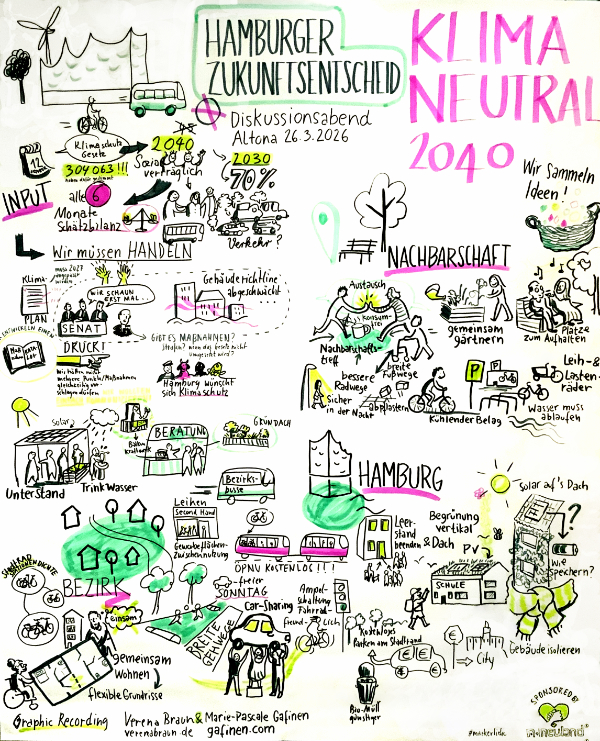 HAMBURGER
ZUKUNFTSENTSCHEID
KLIMA
NEUTRAL
2040
Diskussionsabend
Altona 26.3.2026
Klimaschutz
Gesetz
304 063!!!
12
INPUT
2040
Sozial
verträglich
2030
70%
Verkehr?
alle 6
Monate
Schätzbilanz
Wir müssen HANDELN
Klima-
PLAN
muss 2027
WIR SCHAUN
ERST MAL...
SENAT
Gebäuderichtlinie
abgeschwächt
ENTWICKELN EINEN
DRUCK!
Wir hätten
mehrere Punkte/Maßnahmen
gleichzeitig
GIBT ES MAßNAHMEN?
Hamburg wünscht
sich Klimaschutz
Wir sammeln
Ideen!
NACHBARSCHAFT
Austausch
Konsum-
frei
Nachbarschafts-
treff
gemeinsam
gärtnern
Plätze
zum Aufhalten
breite
Fußwege
bessere
Radwege
Sicher
in der Nacht
abpflastern
P
Kühlender Belag
Leih- &
Lasten-
räder
Wasser muss
ablaufen
Solar
Unterstand
Trinkwasser
Balkon
kraftwerk
BERATUNG
GRÜNDACH
Bezirks-
busse
Leihen
Second Hand
Gewerbeflächen-
Zwischennutzung
ÖPNV KOSTENLOS!!!
BEZIRK
HAMBURG
Leer-
stand
beenden
Begrünung
vertikal
& Dach
PV
SCHULE
Solar auf's Dach
?
Wie
speichern?
Gebäude isolieren
freier
SONNTAG
Car-Sharing
BREITE
GEHWEGE
Ampel-
schaltung
Fahrrad-
freund-
lich
Kostenlos
parken am Stadtrand
€
€
€
City
Bio-Müll
günstiger
einsam
gemeinsam
wohnen
flexible Grundrisse
Graphic Recording
Verena Braun & Marie-Pascale Gafinen
verenabraun.de gafinen.com
SPONSORED BY
neuland